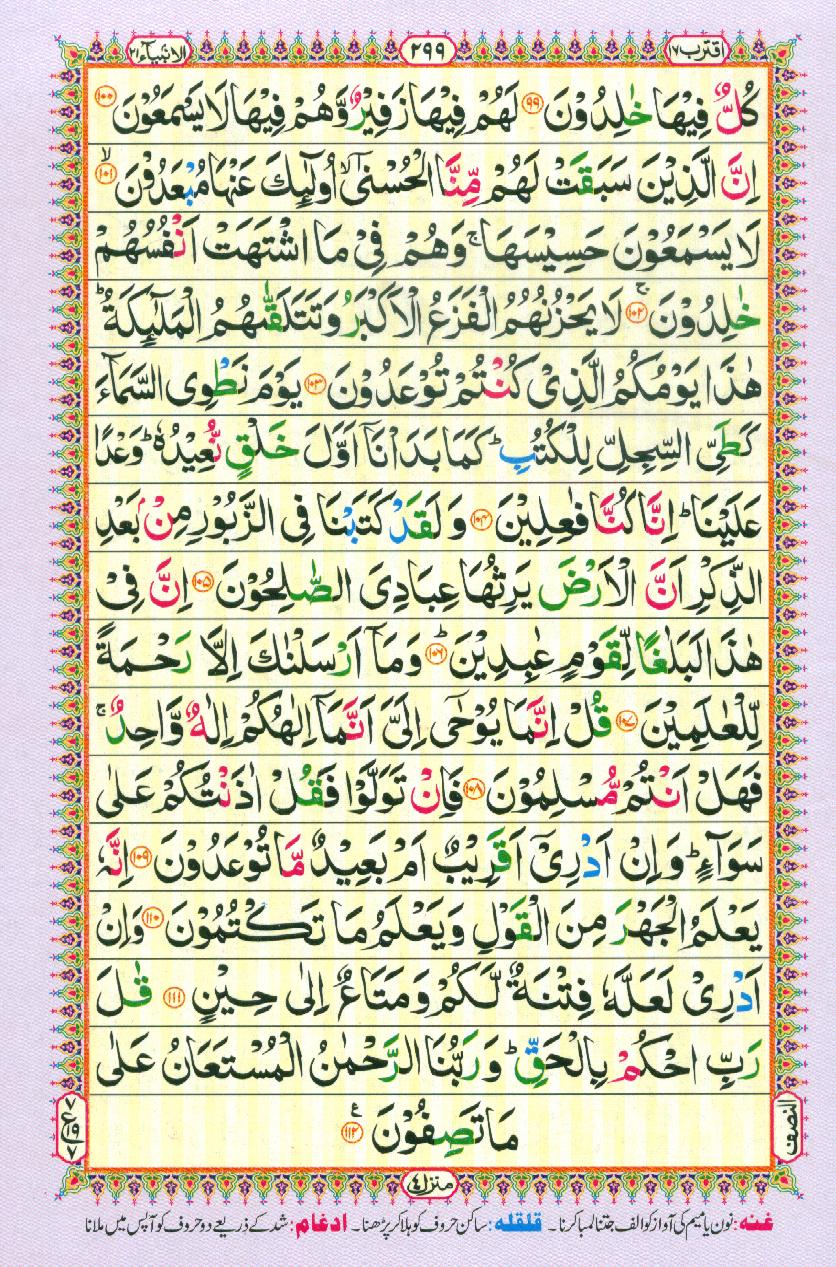 اقترب ۱۷ ۲۹۹ الانبیآء ۲۱
كُلٌّ فِیْهَا خٰلِدُوْنَ ﴿۹۹﴾ لَهُمْ فِیْهَا زَفِیْرٌ وَّهُمْ فِیْهَا لَا یَسْمَعُوْنَ ﴿۱۰۰﴾
اِنَّ الَّذِیْنَ سَبَقَتْ لَهُمْ مِّنَّا الْحُسْنٰۤیۙ اُولٰٓئِكَ عَنْهَا مُبْعَدُوْنَۙ ﴿۱۰۱﴾
لَا یَسْمَعُوْنَ حَسِیْسَهَاۚ وَهُمْ فِیْ مَا اشْتَهَتْ اَنْفُسُهُمْ
خٰلِدُوْنَۚ ﴿۱۰۲﴾ لَا یَحْزُنُهُمُ الْفَزَعُ الْاَكْبَرُ وَتَتَلَقّٰىهُمُ الْمَلٰٓئِكَةُؕ
هٰذَا یَوْمُكُمُ الَّذِیْ كُنْتُمْ تُوْعَدُوْنَ ﴿۱۰۳﴾ یَوْمَ نَطْوِی السَّمَآءَ
كَطَیِّ السِّجِلِّ لِلْكُتُبِؕ كَمَا بَدَاْنَاۤ اَوَّلَ خَلْقٍ نُّعِیْدُهٗؕ وَعْدًا
عَلَیْنَاؕ اِنَّا كُنَّا فٰعِلِیْنَ ﴿۱۰۴﴾ وَلَقَدْ كَتَبْنَا فِی الزَّبُوْرِ مِنْۢ بَعْدِ
الذِّكْرِ اَنَّ الْاَرْضَ یَرِثُهَا عِبَادِیَ الصّٰلِحُوْنَ ﴿۱۰۵﴾ اِنَّ فِیْ
هٰذَا لَبَلٰغًا لِّقَوْمٍ عٰبِدِیْنَؕ ﴿۱۰۶﴾ وَمَاۤ اَرْسَلْنٰكَ اِلَّا رَحْمَةً
لِّلْعٰلَمِیْنَ ﴿۱۰۷﴾ قُلْ اِنَّمَا یُوْحٰۤی اِلَیَّ اَنَّمَاۤ اِلٰهُكُمْ اِلٰهٌ وَّاحِدٌۚ
فَهَلْ اَنْتُمْ مُّسْلِمُوْنَ ﴿۱۰۸﴾ فَاِنْ تَوَلَّوْا فَقُلْ اٰذَنْتُكُمْ عَلٰی
سَوَآءٍؕ وَاِنْ اَدْرِیْۤ اَقَرِیْبٌ اَمْ بَعِیْدٌ مَّا تُوْعَدُوْنَ ﴿۱۰۹﴾ اِنَّهٗ
یَعْلَمُ الْجَهْرَ مِنَ الْقَوْلِ وَیَعْلَمُ مَا تَكْتُمُوْنَ ﴿۱۱۰﴾ وَاِنْ
اَدْرِیْ لَعَلَّهٗ فِتْنَةٌ لَّكُمْ وَمَتَاعٌ اِلٰی حِیْنٍ ﴿۱۱۱﴾ قٰلَ
رَبِّ احْكُمْ بِالْحَقِّؕ وَرَبُّنَا الرَّحْمٰنُ الْمُسْتَعَانُ عَلٰی
مَا تَصِفُوْنَ ﴿۱۱۲﴾ ع
النصف
۷ ع ۱۹ ۷
منزل ۴
غنه: نون یا میم کی آواز کو الف جتنا لمبا کرنا۔ قلقله: ساکن حروف کو ہلا کر پڑھنا۔ ادغام: شد کے ذریعے دو حروف کو آپس میں ملانا